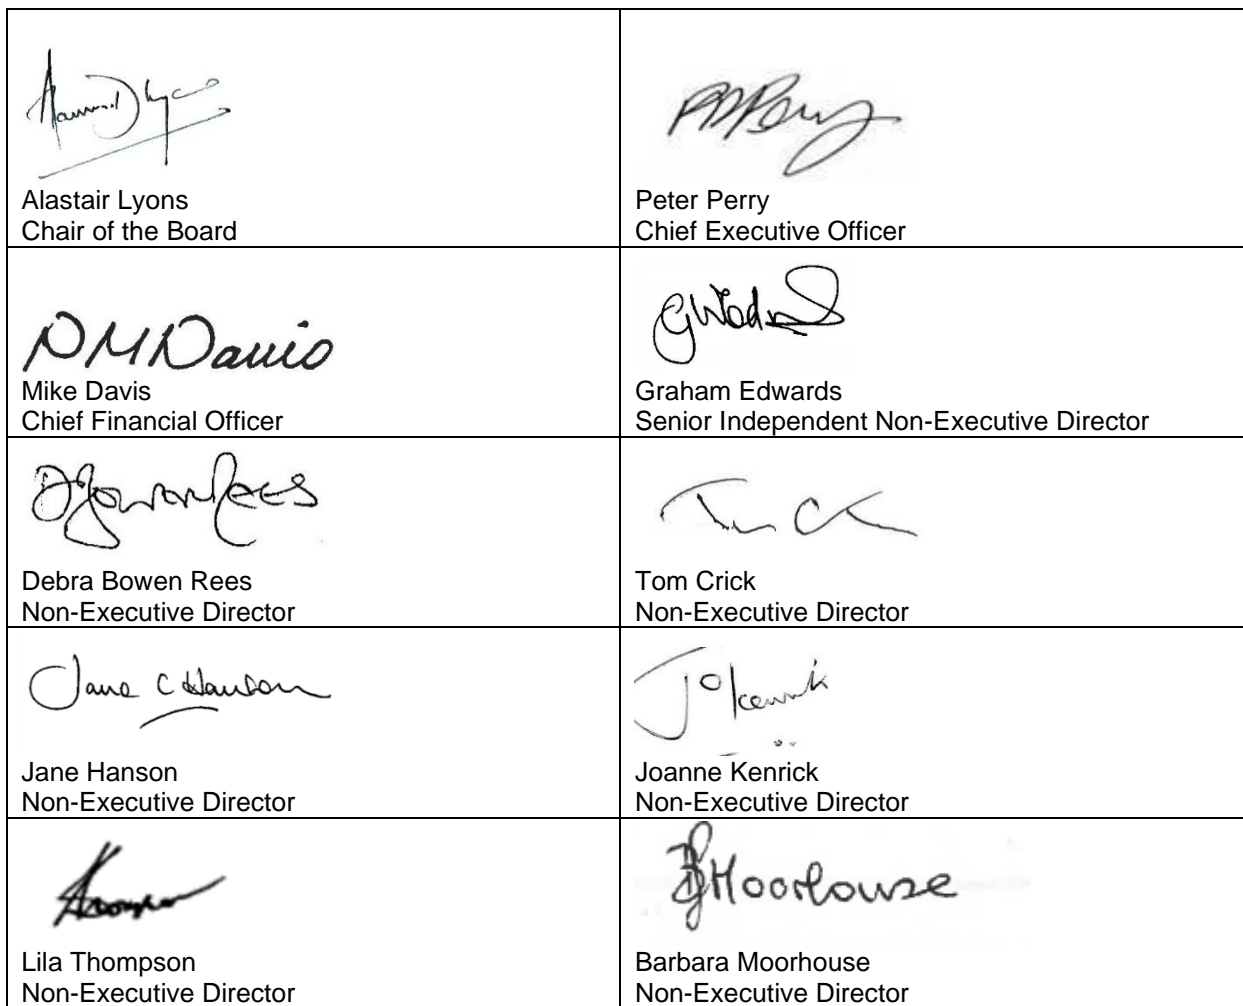 Alastair Lyons
Chair of the Board
Peter Perry
Chief Executive Officer
PMDavis
Mike Davis
Chief Financial Officer
Graham Edwards
Senior Independent Non-Executive Director
Debra Bowen Rees
Non-Executive Director
Tom Crick
Non-Executive Director
Jane C Hanson
Jane Hanson
Non-Executive Director
Jo Kenrick
Joanne Kenrick
Non-Executive Director
Lila Thompson
Non-Executive Director
Moorhouse
Barbara Moorhouse
Non-Executive Director